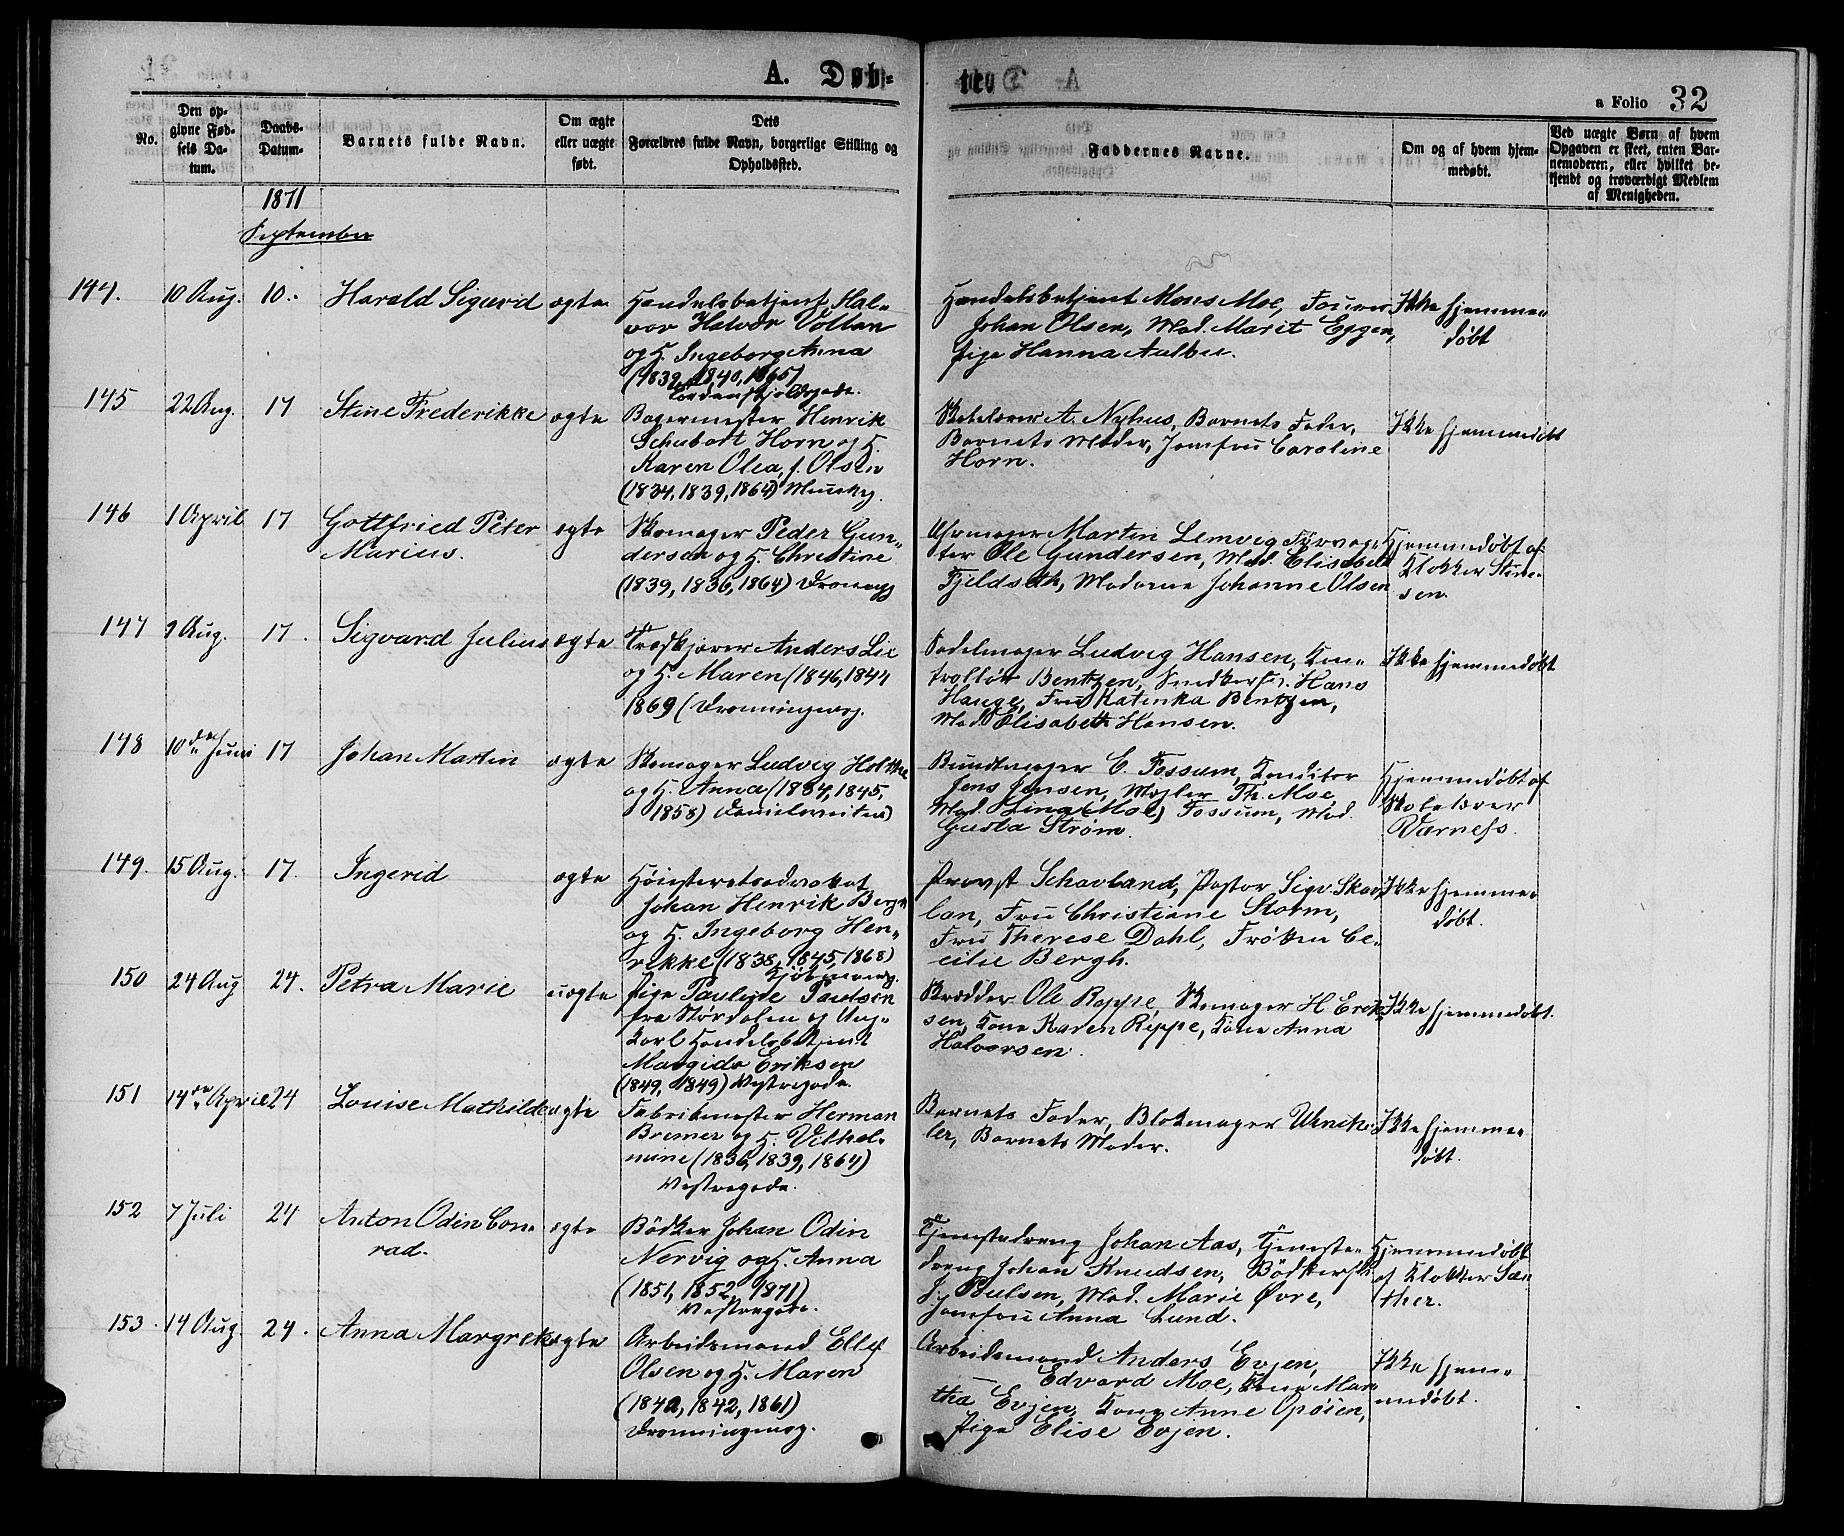 A. Døb-
te
a Folio 32
No.
Den opgivne Fødsels Datum.
Daabs-Datum.
Barnets fulde Navn.
Om ægte eller uægte født.
Dets Forældres fulde Navn, borgerlige Stilling og Opholdssted.
Faddernes Navne.
Om og af hvem hjemmedøbt.
Ved uægte Børn af hvem Opgaven er skeet, enten Barnemoderen, eller hvilket bekjendt og troværdigt Medlem af Menigheden.
1871
September
144. 10 Aug. 10. Harald Sigurd ægte
Handelsbetjent Hal-
vor Halvor Vollan
og H. Ingeborg Anna
(1839, 1840, 1865)
Tordenskjoldsgade.
Handelsbetjent Mons Moe,
Johan Olsen, Mad. Marit Eggen,
Pige Hanna Aalbu.
Ikke hjemme-
døbt
145 22 Aug. 17 Stine Frederikke ægte
Bagermester Henrik
Schubart Horn og H.
Karen Olea, f. Olsen
(1834, 1839, 1864)
Skolelærer A. Nyhus, Barnets Fader,
Barnets Moder, Jomfru Caroline
Horn.
Ikke hjemmedøbt
146 1 April 17 Gottfried Peter
Marius.
ægte
Skomager Peder Gun-
dersen og H. Christine
(1839, 1836, 1864)
Uhrmager Martin Lemvig
Ole Gundersen, Mad. Elisabeth
Fjeldseth, Madame Johanne Olsen
Hjemmedøbt af
Klokker
147 9 Aug. 17. Sigvard Julius ægte
Anders Lie
og H. Maren (1846, 1844
1869) Dronningensg.
Sadelmager Ludvig Hansen, Kon-
trollør Bentzen, Snedkersv. Hans
Hauge, Fru Katinka Bentzen,
Mad. Elisabeth Hansen.
Ikke hjemmedøbt
148 10de Juni 17 Johan Martin ægte
Skomager Ludvig Holthe
og H. Anna (1834, 1845,
1858) Danielsveiten)
Bundtmager E. Fossum, Konditor
Jens Jensen, Mægler Th. Moe,
Mad. Lina (Moe) Fossum, Mad.
Gusta Strøm.
Hjemmedøbt af
Skolelærer
Værnes.
149. 15 Aug. 17. Ingerid ægte
Høiesteretsadvokat
Johan Henrik Bergh
og H. Ingeborg Hen-
rikke (1838, 1845, 1868)
Kjøbmandsg.
Provst Schavland, Pastor Sigv. Skav-
lan, Fru Christiane Storm,
Fru Therese Dahl, Frøken Ce-
cilie Bergh.
Ikke hjemme-
døbt.
150 24 Aug 24. Petra Marie uægte
Pige Pauline Paulsen
fra Størdalen og Ung-
karl Handelsbetjent
Margido Eriksen
(1849, 1849) Vestregade.
Skrædder Ole Reppe, Skomager H. Erik-
sen, Kone Karen Reppe, Kone Anna
Halvorsen.
Ikke hjemmedøbt.
151 14de April 24 Louise Mathilde ægte
Fabrikmester Herman
Bremer og H. Vilhel-
mine (1836, 1839, 1864)
Vestregade.
Barnets Fader, Blokmager
ler, Barnets Moder.
Ikke hjemme-
døbt.
152 7 Juli 24 Anton Odin Con-
rad.
ægte
Bødker Johan Odin
Nervig og H. Anna
(1851, 1852, 1871)
Vestregade.
Tjenestedreng Johan Aas, Tjeneste-
dreng Johan Knudsen, Bødkersv.
J. Paulsen, Mad. Marie Øvre,
Jomfru Anna Lund.
Hjemmedøbt
af Klokker Sæ-
ther.
153. 14 Aug. 24. Anna Margrete ægte
Arbeidsmand Ellef
Olsen og H. Maren
(1842, 1842, 1861)
Dronningensg.
Arbeidsmand Anders Evjen,
Edvard Moe, Kone Mar-
tha Evjen, Kone Anne Opøien,
Pige Elise Evjen.
Ikke hjem-
medøbt.